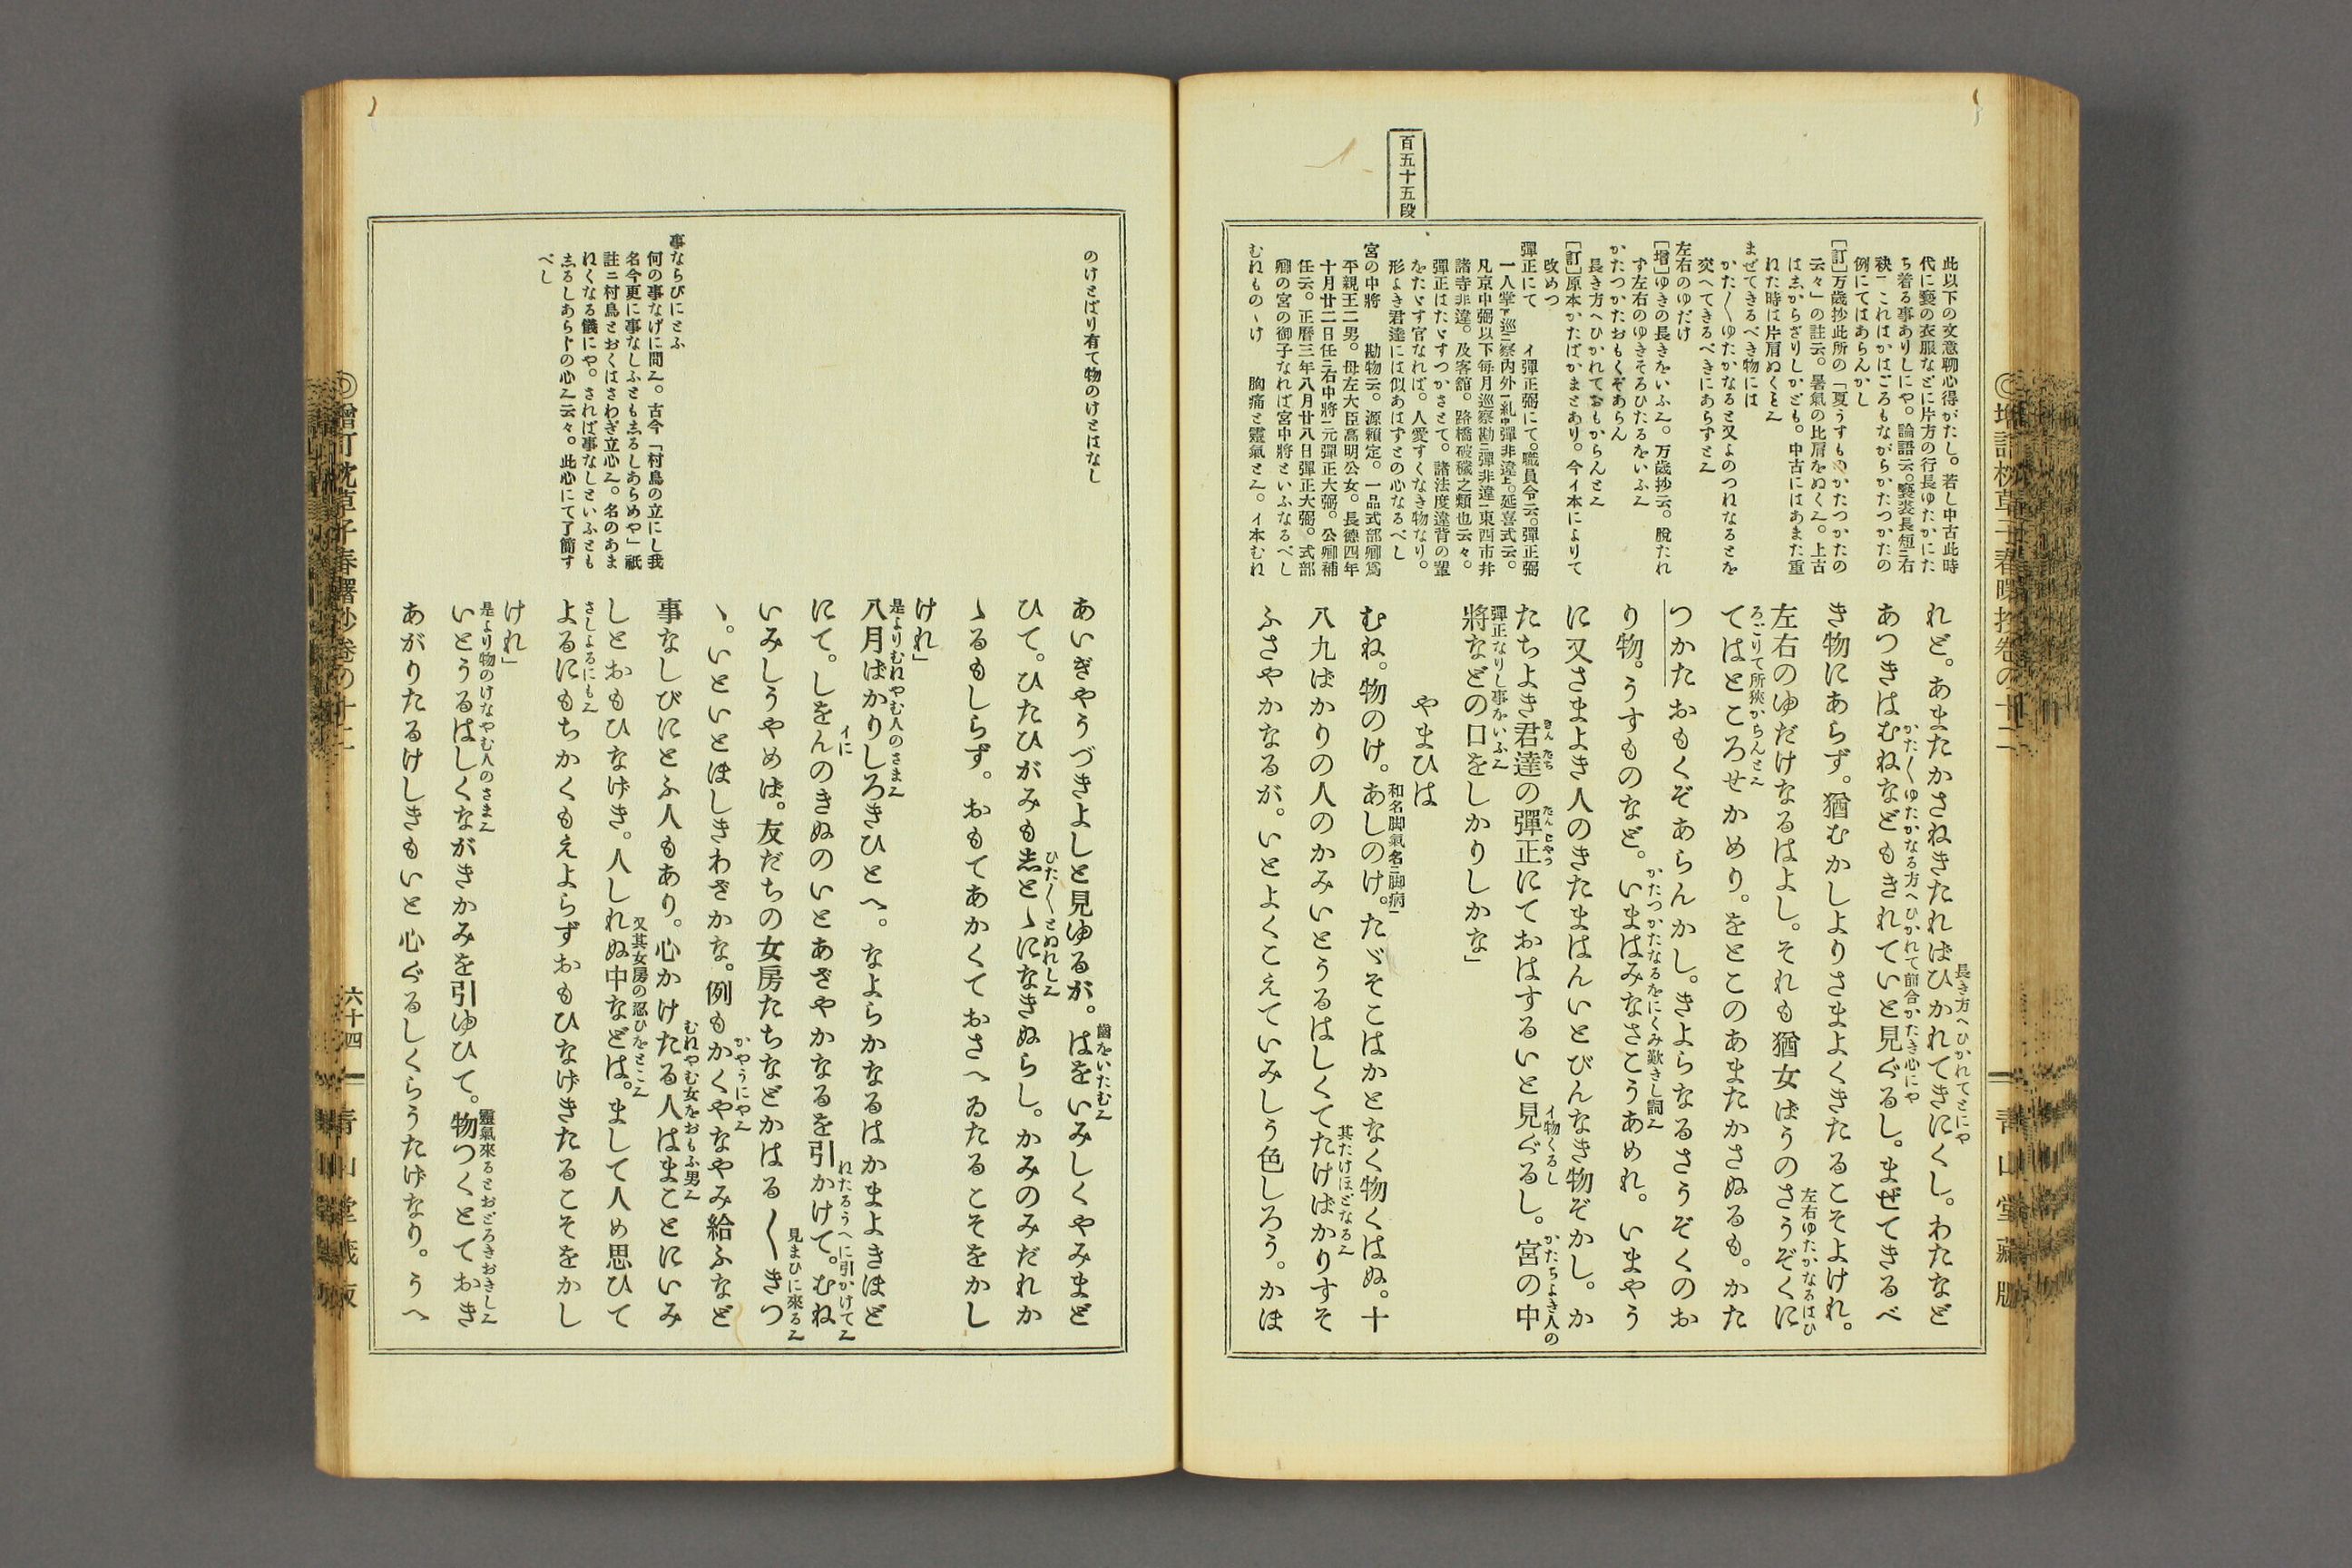 百五十五段
此以下の文意聊心得がたし。若し中古此時
代に褻の衣服などに片方の行長ゆたかにた
ち着る事ありしにや。論語云。褻裘長短㆓右
袂㆒これはかはごろもながらかたつかたの
例にてはあらんかし
[訂]万歳抄此所の「夏うすものかたつかたの
云々」の註云。暑氣の比肩をぬく𛀁。上古
はゑからざりしかども。中古にはあまた重
ねた時は片肩ぬくと𛀁
まぜてきるべき物には
かた〳〵ゆたかなると又よのつねなるとを
交へてきるべきにあらずと𛀁
左右のゆだけ
[増]ゆきの長きをいふ𛀁。万歳抄云。脫たれ
ず左右のゆきそろひたるをいふ𛀁
かたつかたおもくぞあらん
長き方へひかれておもからんと𛀁
[訂]原本かたばかまとあり。今イ本によりて
改めつ
彈正にて　イ彈正弼にて。職員令云。彈正弼
一人掌下巡㆓察内外㆒糺中彈非違上。延喜式云。
凡京中弼以下每月巡察勘㆓彈非違㆒東西市井
諸寺非違。及客館。路橋破穢之類也云々。
彈正はたゞすつかさとて。諸法度違背の輩
をたゞす官なれば。人愛すくなき物なり。
形よき君達には似あはずとの心なるべし
宮の中將　勘物云。源賴定。一品式部卿爲
平親王二男。母左大臣高明公女。長德四年
十月廿二日任㆓右中將㆒元彈正大弼。公卿補
任云。正曆三年八月廿八日彈正大弼。式部
卿の宮の御子なれば宮中將といふなるべし
むねものゝけ　胸痛と靈氣と𛀁。イ本むね
れど。あまたかさねきたればひかれてきにくし。わたなど
長き方へひかれてとにや
あつきはむねなどもきれていと見ぐるし。まぜてきるべ
かた〳〵ゆたかなる方へひかれて前合かたき心にや
き物にあらず。猶むかしよりさまよくきたるこそよけれ。
左右のゆだけなるはよし。それも猶女ばうのさうぞくに
左右ゆたかなるはひ
てはところせかめり。をとこのあまたかさぬるも。かた
ろごりて所狹からんと𛀁
つかたおもくぞあらんかし。きよらなるさうぞくのお
り物。うすものなど。いまはみなさこうあめれ。いまやう
かたつかたなるをにくみ歎きし詞𛀁
に又さまよき人のきたまはんいとびんなき物ぞかし。か
たちよき君達の彈正にておはするいと見ぐるし。宮の中
きんたち
たんじやう
イ物くるし
かたちよき人の
將などの口をしかりしかな」
彈正なりし事をいふ𛀁
やまひは
むね。物のけ。あしのけ。たゞそこはかとなく物くはぬ。十
和名脚氣名㆓脚病㆒
八九ばかりの人のかみいとうるはしくてたけばかりすそ
其たけほどなる𛀁
ふさやかなるが。いとよくこえていみしう色しろう。かほ
のけとばり有て物のけとはなし
事ならびにとふ
何の事なげに問𛀁。古今「村鳥の立にし我
名今更に事なしふともゑるしあらめや」祇
註ニ村鳥とおくはさわぎ立心𛀁。名のあま
ねくなる儀にや。されば事なしといふとも
ゑるしあらじの心𛀁云々。此心にて了簡す
べし
あいぎやうづきよしと見ゆるが。はをいみしくやみまど
齒をいたむ𛀁
ひて。ひたひがみも志とゝになきぬらし。かみのみだれか
ひた〳〵とぬれし𛀁
ゝるもしらず。おもてあかくておさへゐたるこそをかし
けれ」
八月ばかりしろきひとへ。なよらかなるはかまよきほど
是よりむねやむ人のさま𛀁
にて。しをんのきぬのいとあざやかなるを引かけて。むね
イに
ねたるうへに引かけて𛀁
いみしうやめば。友だちの女房たちなどかはる〳〵きつ
見まひに來る𛀁
ゝ。いといとほしきわざかな。例もかくやなやみ給ふなど
かやうにや𛀁
事なしびにとふ人もあり。心かけたる人はまことにいみ
むねやむ女をおもふ男𛀁
しとおもひなげき。人しれぬ中などは。まして人め思ひて
又其女房の忍ひをとこ𛀁
よるにもちかくもえよらずおもひなげきたるこそをかし
さしよるにも𛀁
けれ」
いとうるはしくながきかみを引ゆひて。物つくとておき
是より物のけなやむ人のさま𛀁
靈氣來るとおどろきおきし𛀁
あがりたるけしきもいと心ぐるしくらうたげなり。うへ
六十四